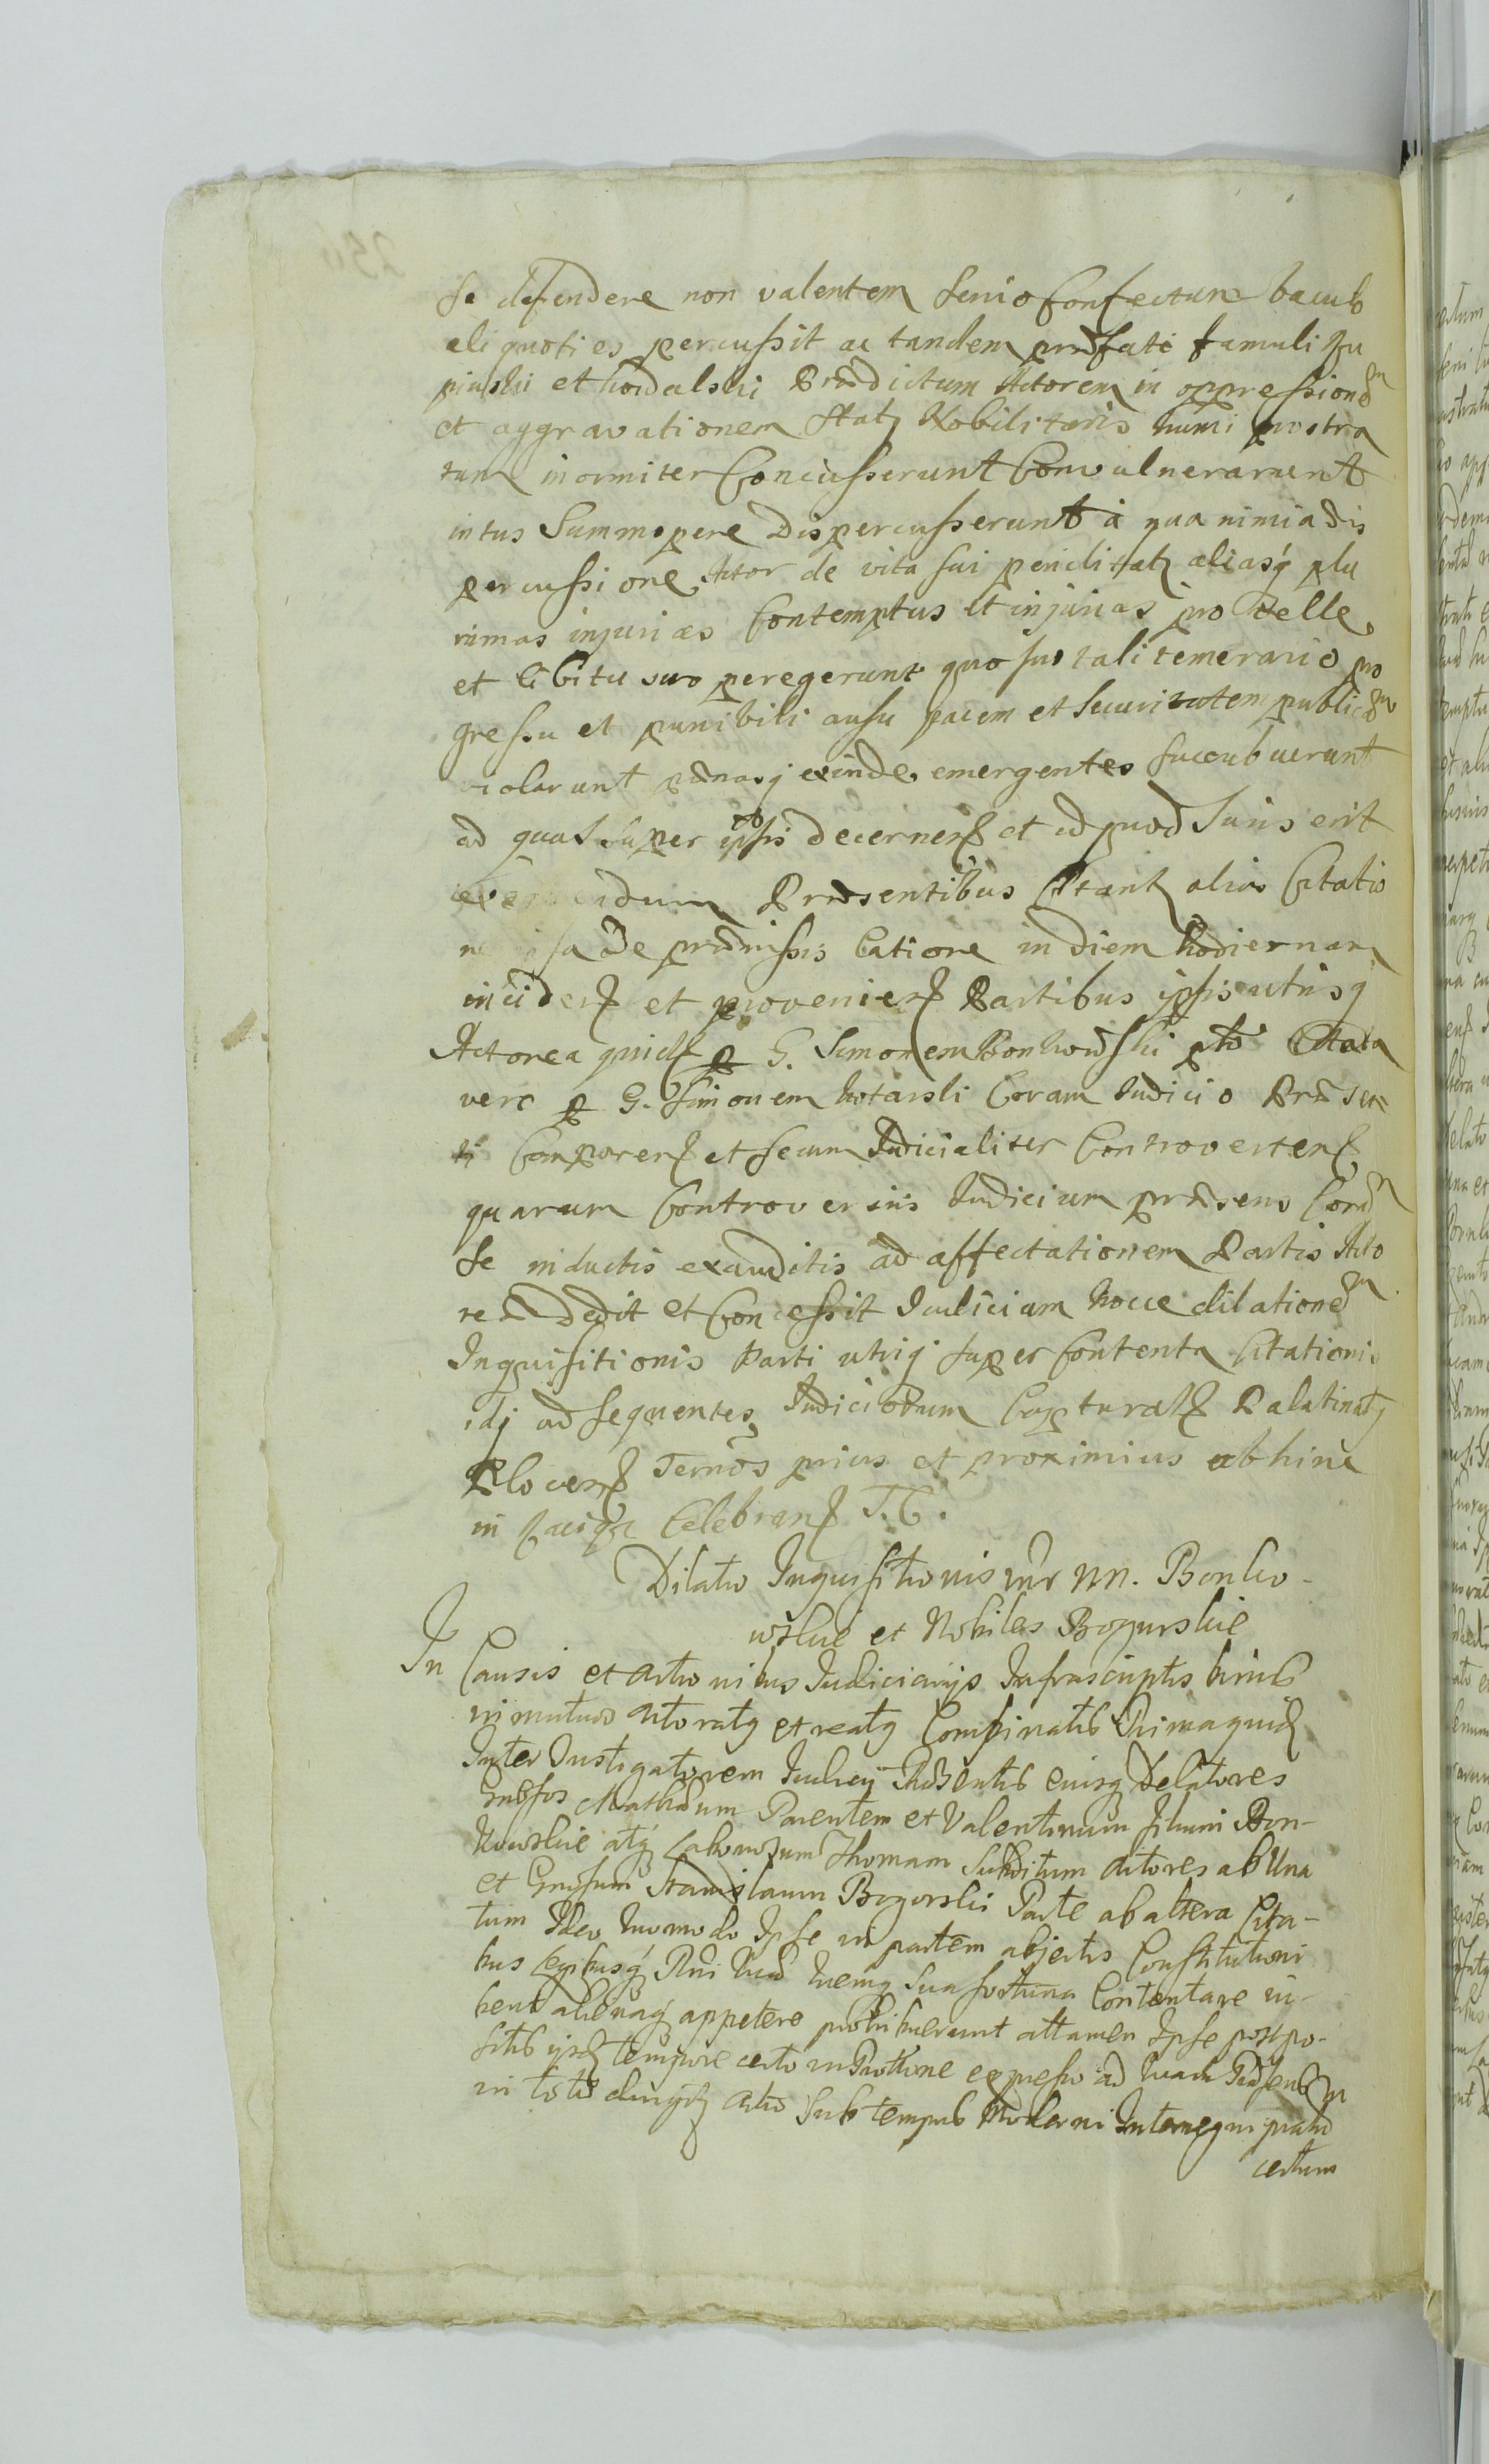 se defendere non valentem senio Confectum baculo
aliquoties percussit ac tandem præfati famuli Zu
pinski et Prædictum Actorem in oppressionem
et aggravationem Statq Nobilitaris humi prostra
tum inormiter Concusserunt Convulnerarunt
intus Summopere Dispercusserunt à qua nimia dis
percussione Actor de vita sui periclitatq aliasq plu
rimas injurias Contemptus et injurias pro velle
et libitu suo peregerunt quo suo tali temerario pro
gressu et punibili ausu pacem et Securitatem publicam
violarunt pænasq exinde emergentes succubuerunt
ad quas super ipsis decernen et id quod Juris erit
Præsentibus Citant alias Citatio
de præmissis latione in diem hodiernam
inciden et provenien Partibus ipsis utrisq
Actorea quid p G. Simonem Bonkowski Citata
vero p G. Simonem Coram Judicio Præsen
ti Comparen et secum Judicialiter Controverten
quarum Controversiis Judicium præsens Coram
se inductis exauditis ad affectationem Partis Acto
reæ Dedit et Concessit Judicium hocce dilationem
Inquisitionis Parti utriq super Contenta Citationis
idq ad sequentes Judiciorum Captural Palatinatq
Plocen Termos prius et proximius abhinc
in Raciąz Celebran T. C.
Dilatio Inquisitionis intr NN. Bonko-
wskie et Nobiles Bogurskie
In Causis et Actionibus Judiciarijs Infrascriptis binis
in mutuo Actoratq et reatq Combinatis Prima quid
Inter Instigatorem Judicij Præsentis eiusq Delatores
Gnosos Mathæum Parentem et Valentinum filium Bon-
kowskie atq Laboriosum Thomam Subditum Actores ab Una
et Gnosum Stanislaum Bogorski Parte ab altera Cita-
tum Ideo Quomodo Ipse in partem abjectis Constitutioni
bus Legibusq Rni quæ quemq sua fortuna Contentare iu-
bent alienaq appetere prohibuerunt attamen Ipse postpo-
sitis ijsd tempore certo in Prottione expresso ad quam Præsens
in toto dirigitq Actio Sub tempus Moderni Interregni
certum